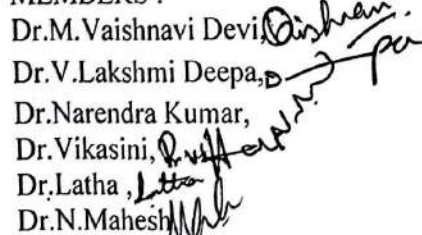 MEMBERS :
Dr.M.Vaishnavi Devi,
Dr.V.Lakshmi Deepa,
Dr.Narendra Kumar,
Dr.Vikasini,
Dr.Latha , Latha
Dr.N.Mahesh